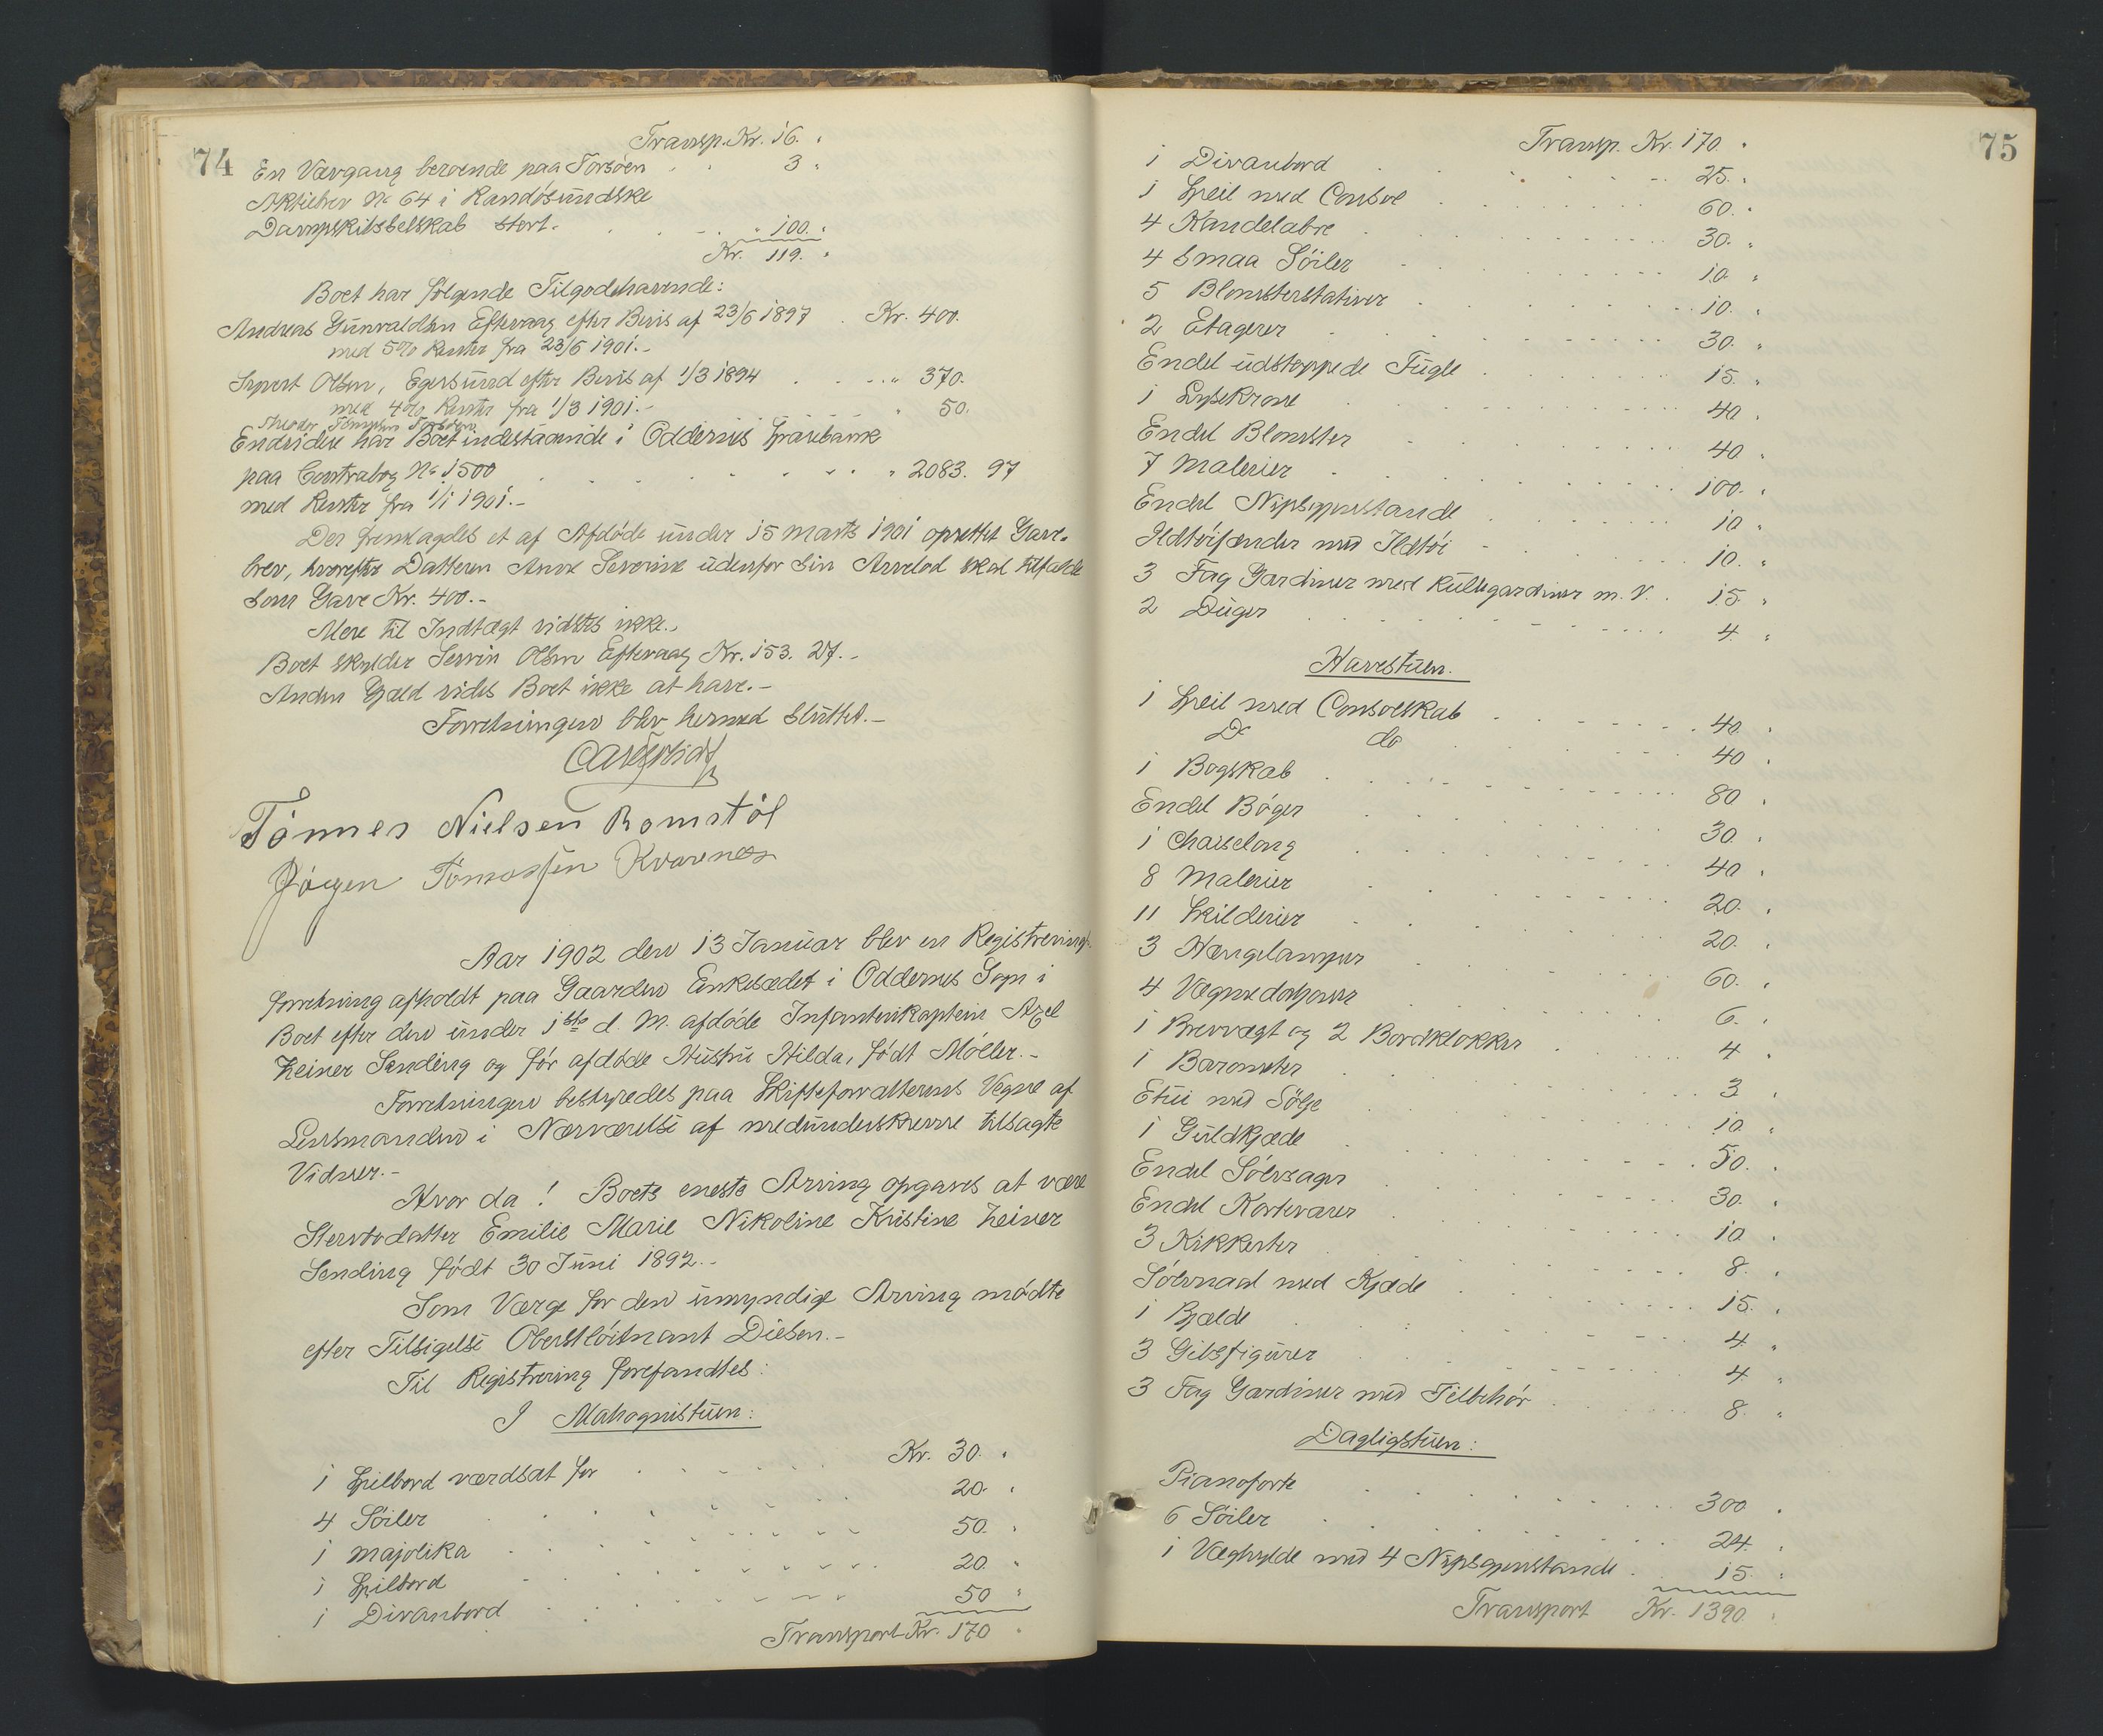 74
Transp. Kr. 16. "
En Vævgang beroende paa Torsøen . . 3 "
Aktiebrev No 64 i Randøsundske
Dampskibsselskab stort. . . . " 100. "
Kr. 119. "
Boet har følgende Tilgodehavende:
Andreas Gunvaldsen Eftevaag efter Bevis af 23/6 1897 . Kr. 400.
med 5% Renter fra 23/6 1901.-
Sivert Olsen, Egersund efter Bevis af 1/3 1894 . . . " 370.
med 4% Renter fra 1/3 1901.-
Theodor Tønnesen Torsøen " 50.
Endvidere har Boet indestaaende i Oddernes Sparebank
paa Contrabog No 1500 . . . . " 2083. 97
med Renter fra 1/1 1901.-
Der fremlagdes et af Afdøde under 15 marts 1901 oprettet Gave-
brev, hvorefter Datteren Anne Severine udenfor sin Arvelod skal tilfalde
som Gave Kr. 400.-
Mere til Indtægt vidstes ikke.-
Boet skylder Servin Olsen Eftevaag Kr. 153. 27.-
Anden Gjæld vides Boet ikke at have.-
Forretningen blev hermed sluttet.-
Tønnes Nielsen Romstøl
Jögen Tomassen Kvarenes
Aar 1902 den 13 Januar blev en Registrerings-
forretning afholdt paa Gaarden Enkesædet i Oddernes Sogn i
Boet efter den under 1ste d. M. afdøde Infanterikaptein Axel
Zeiner Sending og før afdøde Hustru Hilda, født Møller.-
Forretningen bestyredes paa Skifteforvalterens Vegne af
Lensmanden i Nærværelse af medunderskrevne tilsagte
Vidner.-
Hvor da! Boets eneste Arving opgaves at være
Stervbodatter Emilie Marie Nikoline Kristine Zeiner
Sending født 30 Juni 1892.-
Som Værge for den umyndige Arving mødte
efter Tilsigelse Oberstløitnant Diesen.-
Til Registrering forefandtes:
I Mahognistuen:
1 Spilbord værdsat for . . . Kr. 30. "
4 Søiler . . . 20. "
1 majolika . . . 50. "
1 Spilbord . . . 20. "
1 Divanbord . . . 50 "
Transport Kr. 170 "
75
Transp. Kr. 170. "
1 Divanbord . . . 25. "
1 Speil med Consol . . . 60. "
4 Kandelabre . . . 30. "
4 smaa Søiler . . . 10. "
5 Blomsterstativer . . . 10. "
2 Etagerer . . . 30. "
Endel udstoppede Fugle . . . 15. "
1 Lysekrone . . . 40. "
Endel Blomster . . . 40. "
7 Malerier . . . 100. "
Endel Nipsgjenstande . . . 10 "
Ildtøisænder med Ildtøi . . . 10. "
3 Fag Gardiner med Rullegardiner m. V. . 15. "
2 Duger . . . 4. "
Havestuen.
1 Speil med Consolskab . . . 40. "
Do do . . . 40 "
1 Bogskab . . . 80. "
Endel Bøger . . . 30. "
1 Chaiselong . . . 40. "
8 Malerier . . . 20. "
11 Skilderier . . . 20. "
3 Hængelamper . . . 60. "
4 . . . 6. "
1 Brevvægt og 2 Bordklokker . . . 4 "
1 Barometer . . . 3 "
Etui med Sølje . . . 10. "
1 Guldkjæde . . . 50. "
Endel Sølvsager . . . 30. "
Endel Kortevarer . . . 10. "
3 Kikkerter . . . 8. "
Sølvnaal med Kjæde . . . 15. "
1 Bjælde . . . 4. "
3 Gibsfigurer . . . 4. "
3 Fag Gardiner med Tilbehør . . . 8. "
Dagligstuen:
Pianoforte . . . 300. "
6 Søiler . . . 24. "
1 Væghylde med 4 Nipsgjenstande . 15. "
Transport Kr. 1390. "